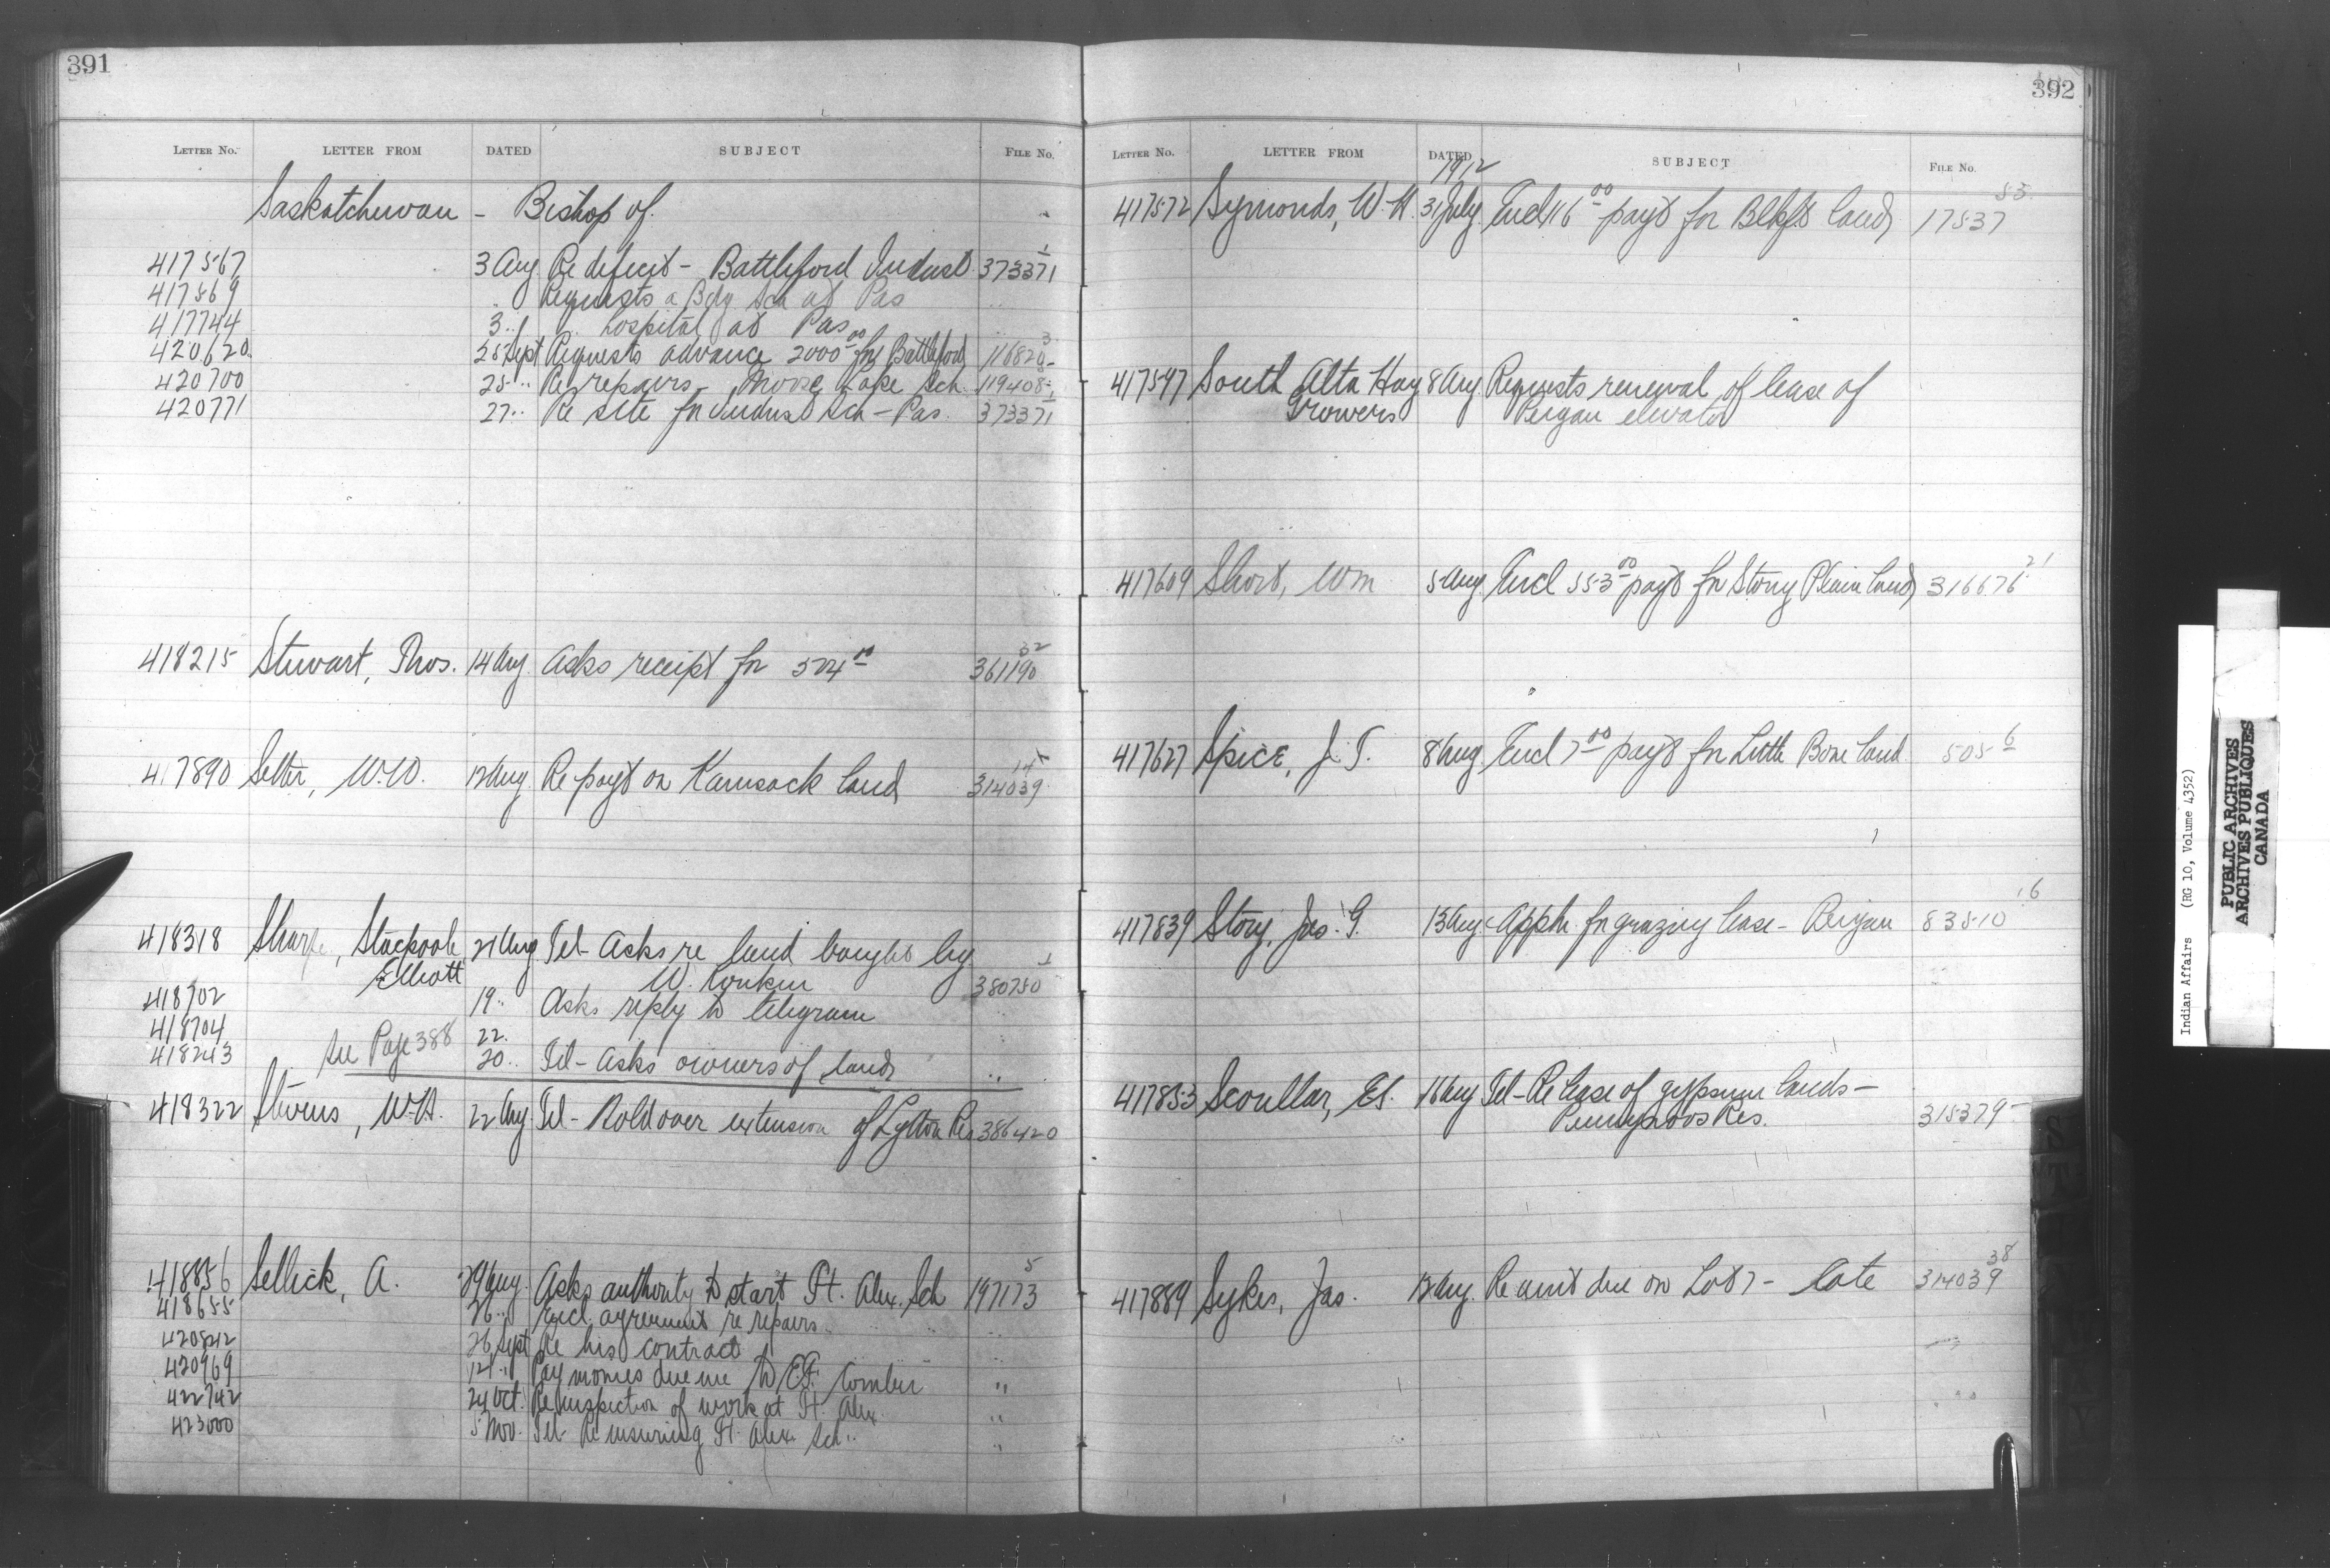 391
LETTER NO. LETTER FROM DATED SUBJECT FILE NO.
Saskatchewan - Bishop of.
417567 3 Aug Re deficit - Battleford Indust 373371-1
417569 " Requests a Bdg Sch at Pas "
417744 3 " " hospital at Pas "
420620 25 Sept Requests advance 2000 00 for Battleford
420700 25 " Re repairs - Moose Lake Sch. 119408-1
420771 27 " Re site for Indust Sch - Pas. 373371
418215 Stewart, Thos. 14 Aug Asks receipt for 504 00 361190 32
417890 Setter, W.W. 12 Aug Re payt on Kamsack land 314039
418318 Sharpe, Stackpoole 21 Aug Tel - Asks re land bought by
Elliott W. 380750 1
418702 19 " Asks reply to telegram
418704 22 "
418243 see Page 388 20 " Tel - Asks owners of land "
418322 Stevens, W.H. 22 Aug Tel - Hold over extension of Lytton Res 386420
418856 Sellick, A. 29 Aug. Asks authority to start Ft. Alex. Sch 197173 5
418655 26 " Encl agreement re repairs "
420842 26 Sept Re his contract "
420969 12 " Pay monies due me to E.F. Comber "
422742 24 Oct. Re inspection of work at Ft. Alex "
423000 5 Nov. Tel - Re insuring Ft. Alex. Sch. "
392
LETTER NO. LETTER FROM DATED SUBJECT FILE NO.
1912
417572 Symonds, W.H. 31 July Encl 116 00 payt for Blkft land 17537 85
417547 South Alta Hay 8 Aug. Requests renewal of lease of
Growers Peigan elevator
417609 Short, Wm 5 Aug. Encl 553 00 payt for Stony Plain land 316676 21
417627 Spice, J.T. 8 Aug Encl 7 00 payt for Little Bone land 505 6
417839 Story, Jas. G. 13 Aug Appln. for grazing lease - Peigan 83510 6
417853 Scoullar, Et. 16 Aug Tel - Re lease of gypsum lands -
Res. 315379
417889 Sykes, Jas. 12 Aug. Re amt due on Lot 7 - Cote 314039 38
Indian Affairs (RG 10, Volume 4352)
PUBLIC ARCHIVES
ARCHIVES PUBLIQUES
CANADA